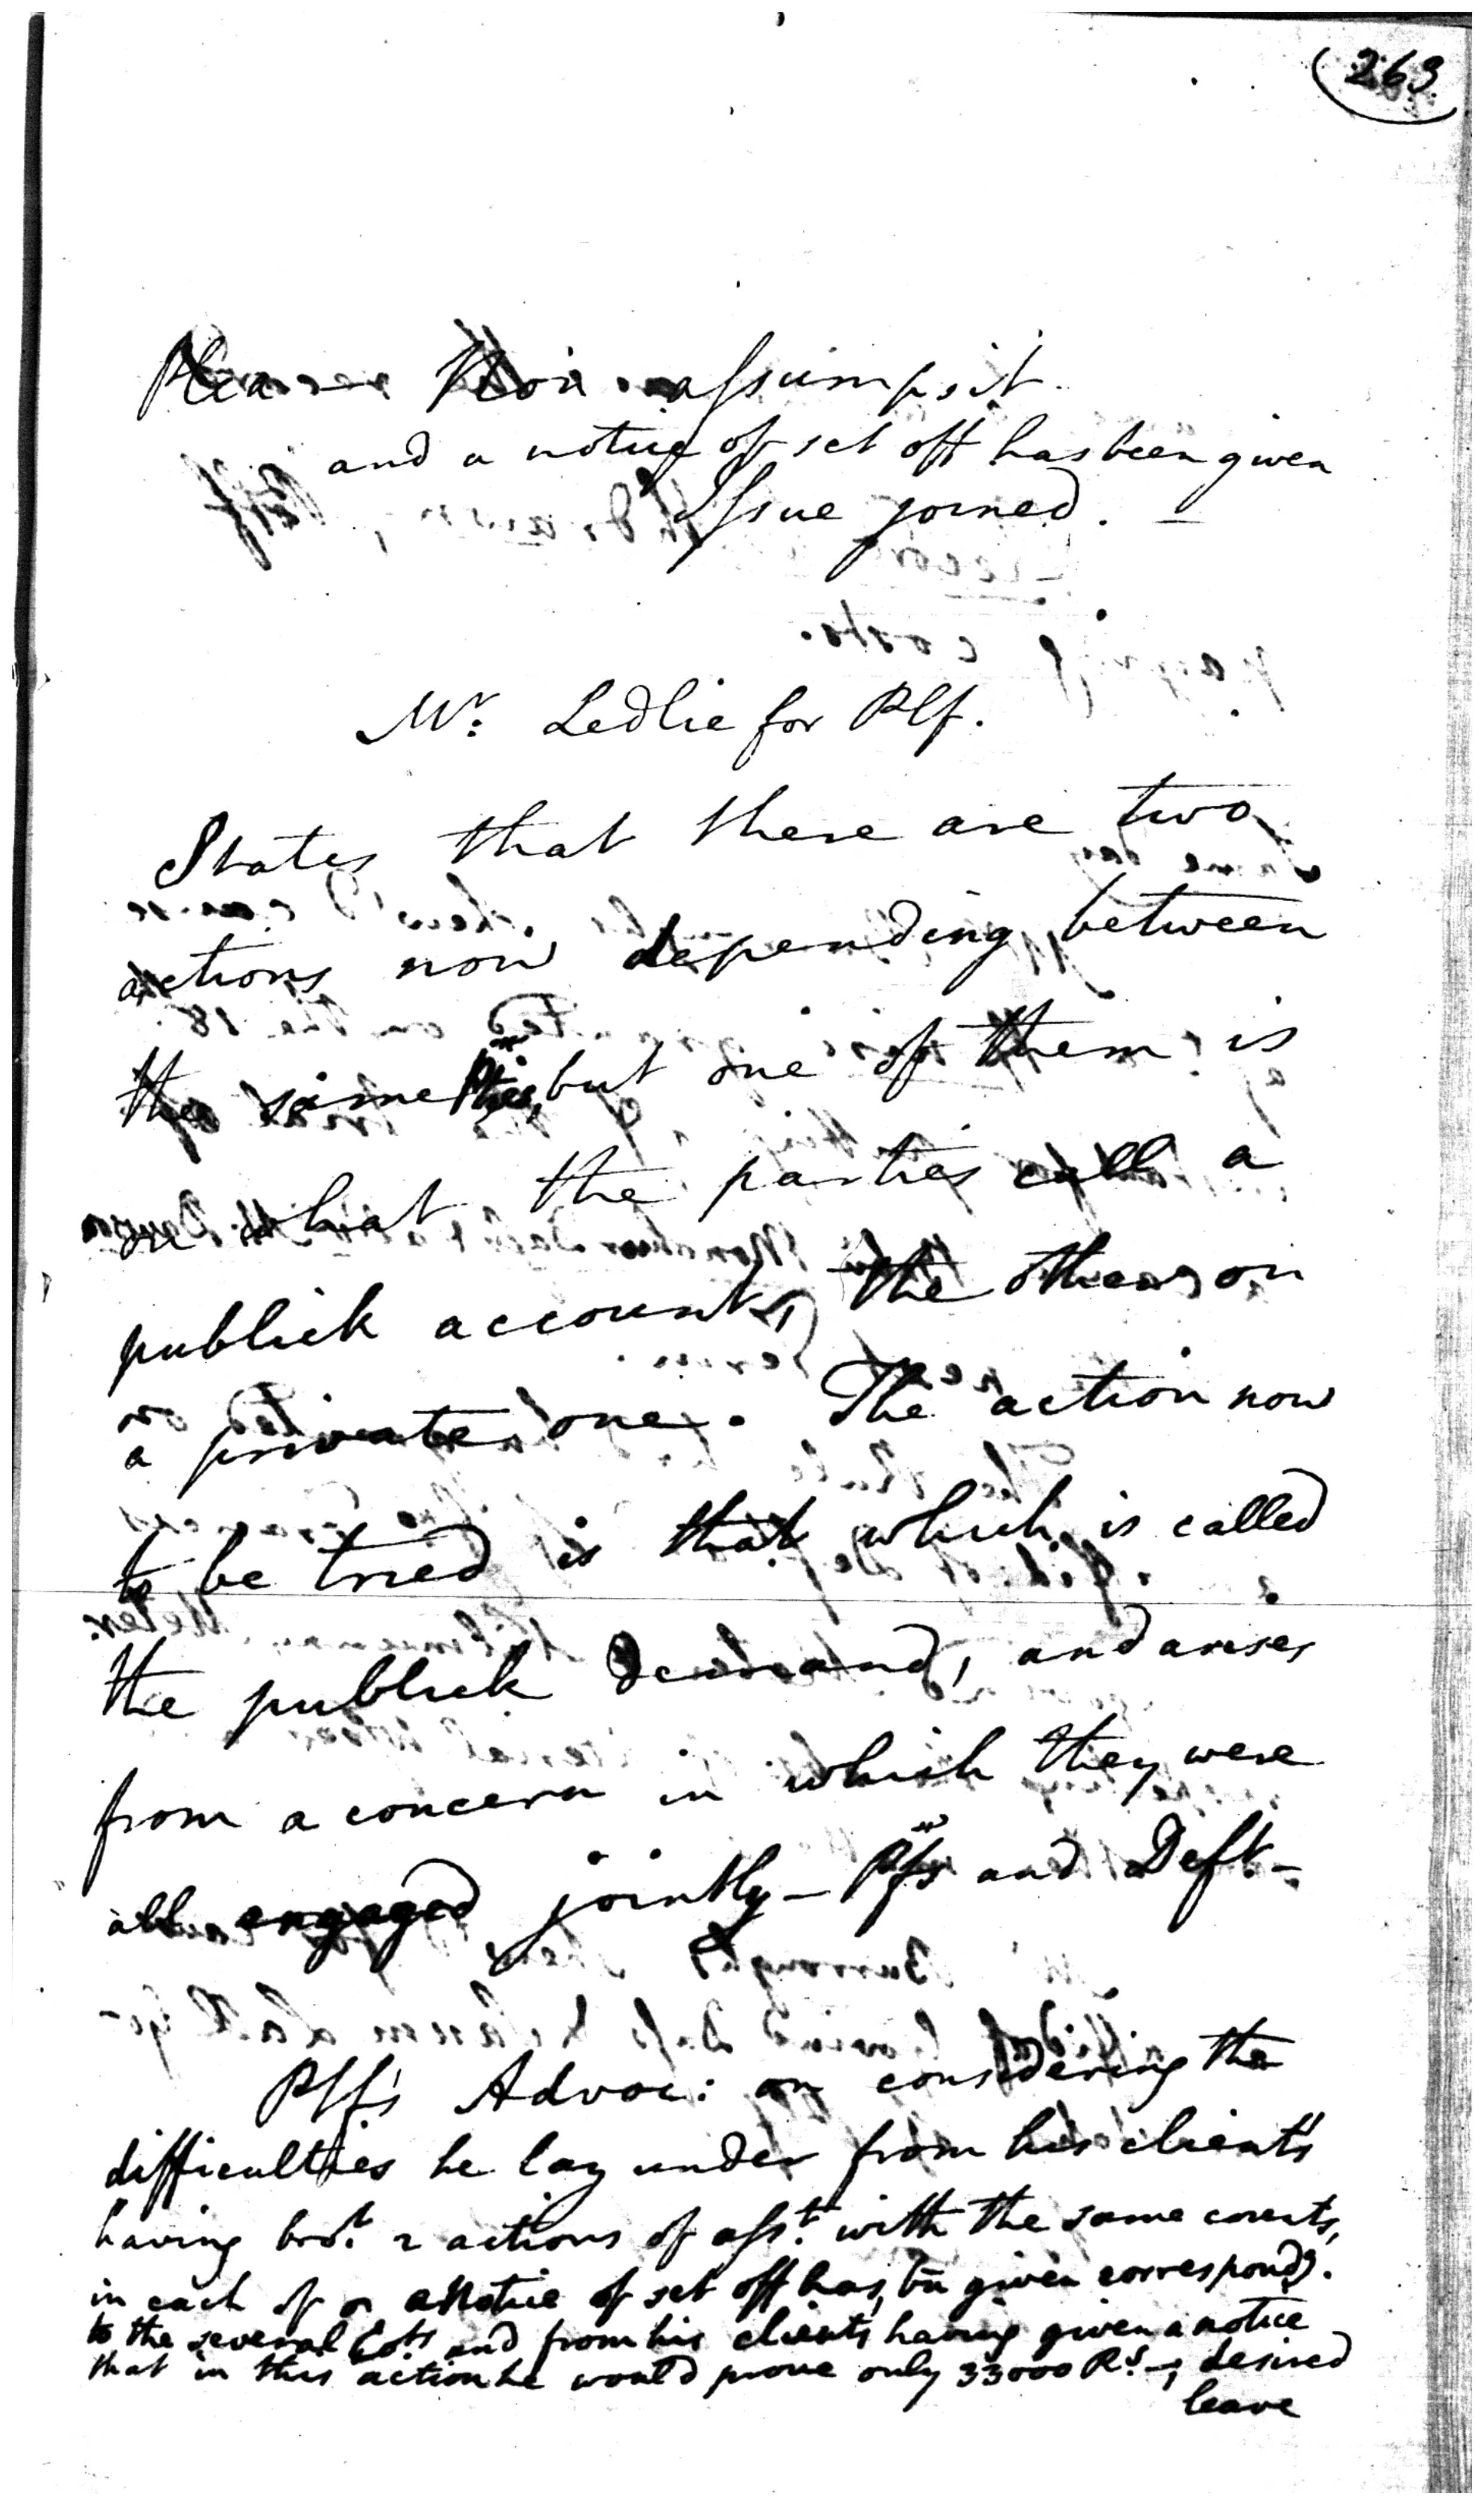 (269
Plea — Non assumpsit
and a notice of set off has been given
Issue joined. —
Mr: Ledlie for Plf.
States that there are two
actions now depending between
the same Pties, but one of them is
on what the parties call a
publick account, the other on
a private one. The action now
to be tried is that which is called
the publick demand, and arises
from a concern in which they were
all engaged jointly — Plfs and Deft —
Plf's Advoc: on considering the
difficulties he lay under from his client's
having brot. 2 actions of asst. with the same counts,
in each of a Notice of set off has bn given correspondg.
to the several and from his clients having given a notice
that in this action he would prove only 33000 Rs —, desired
leave